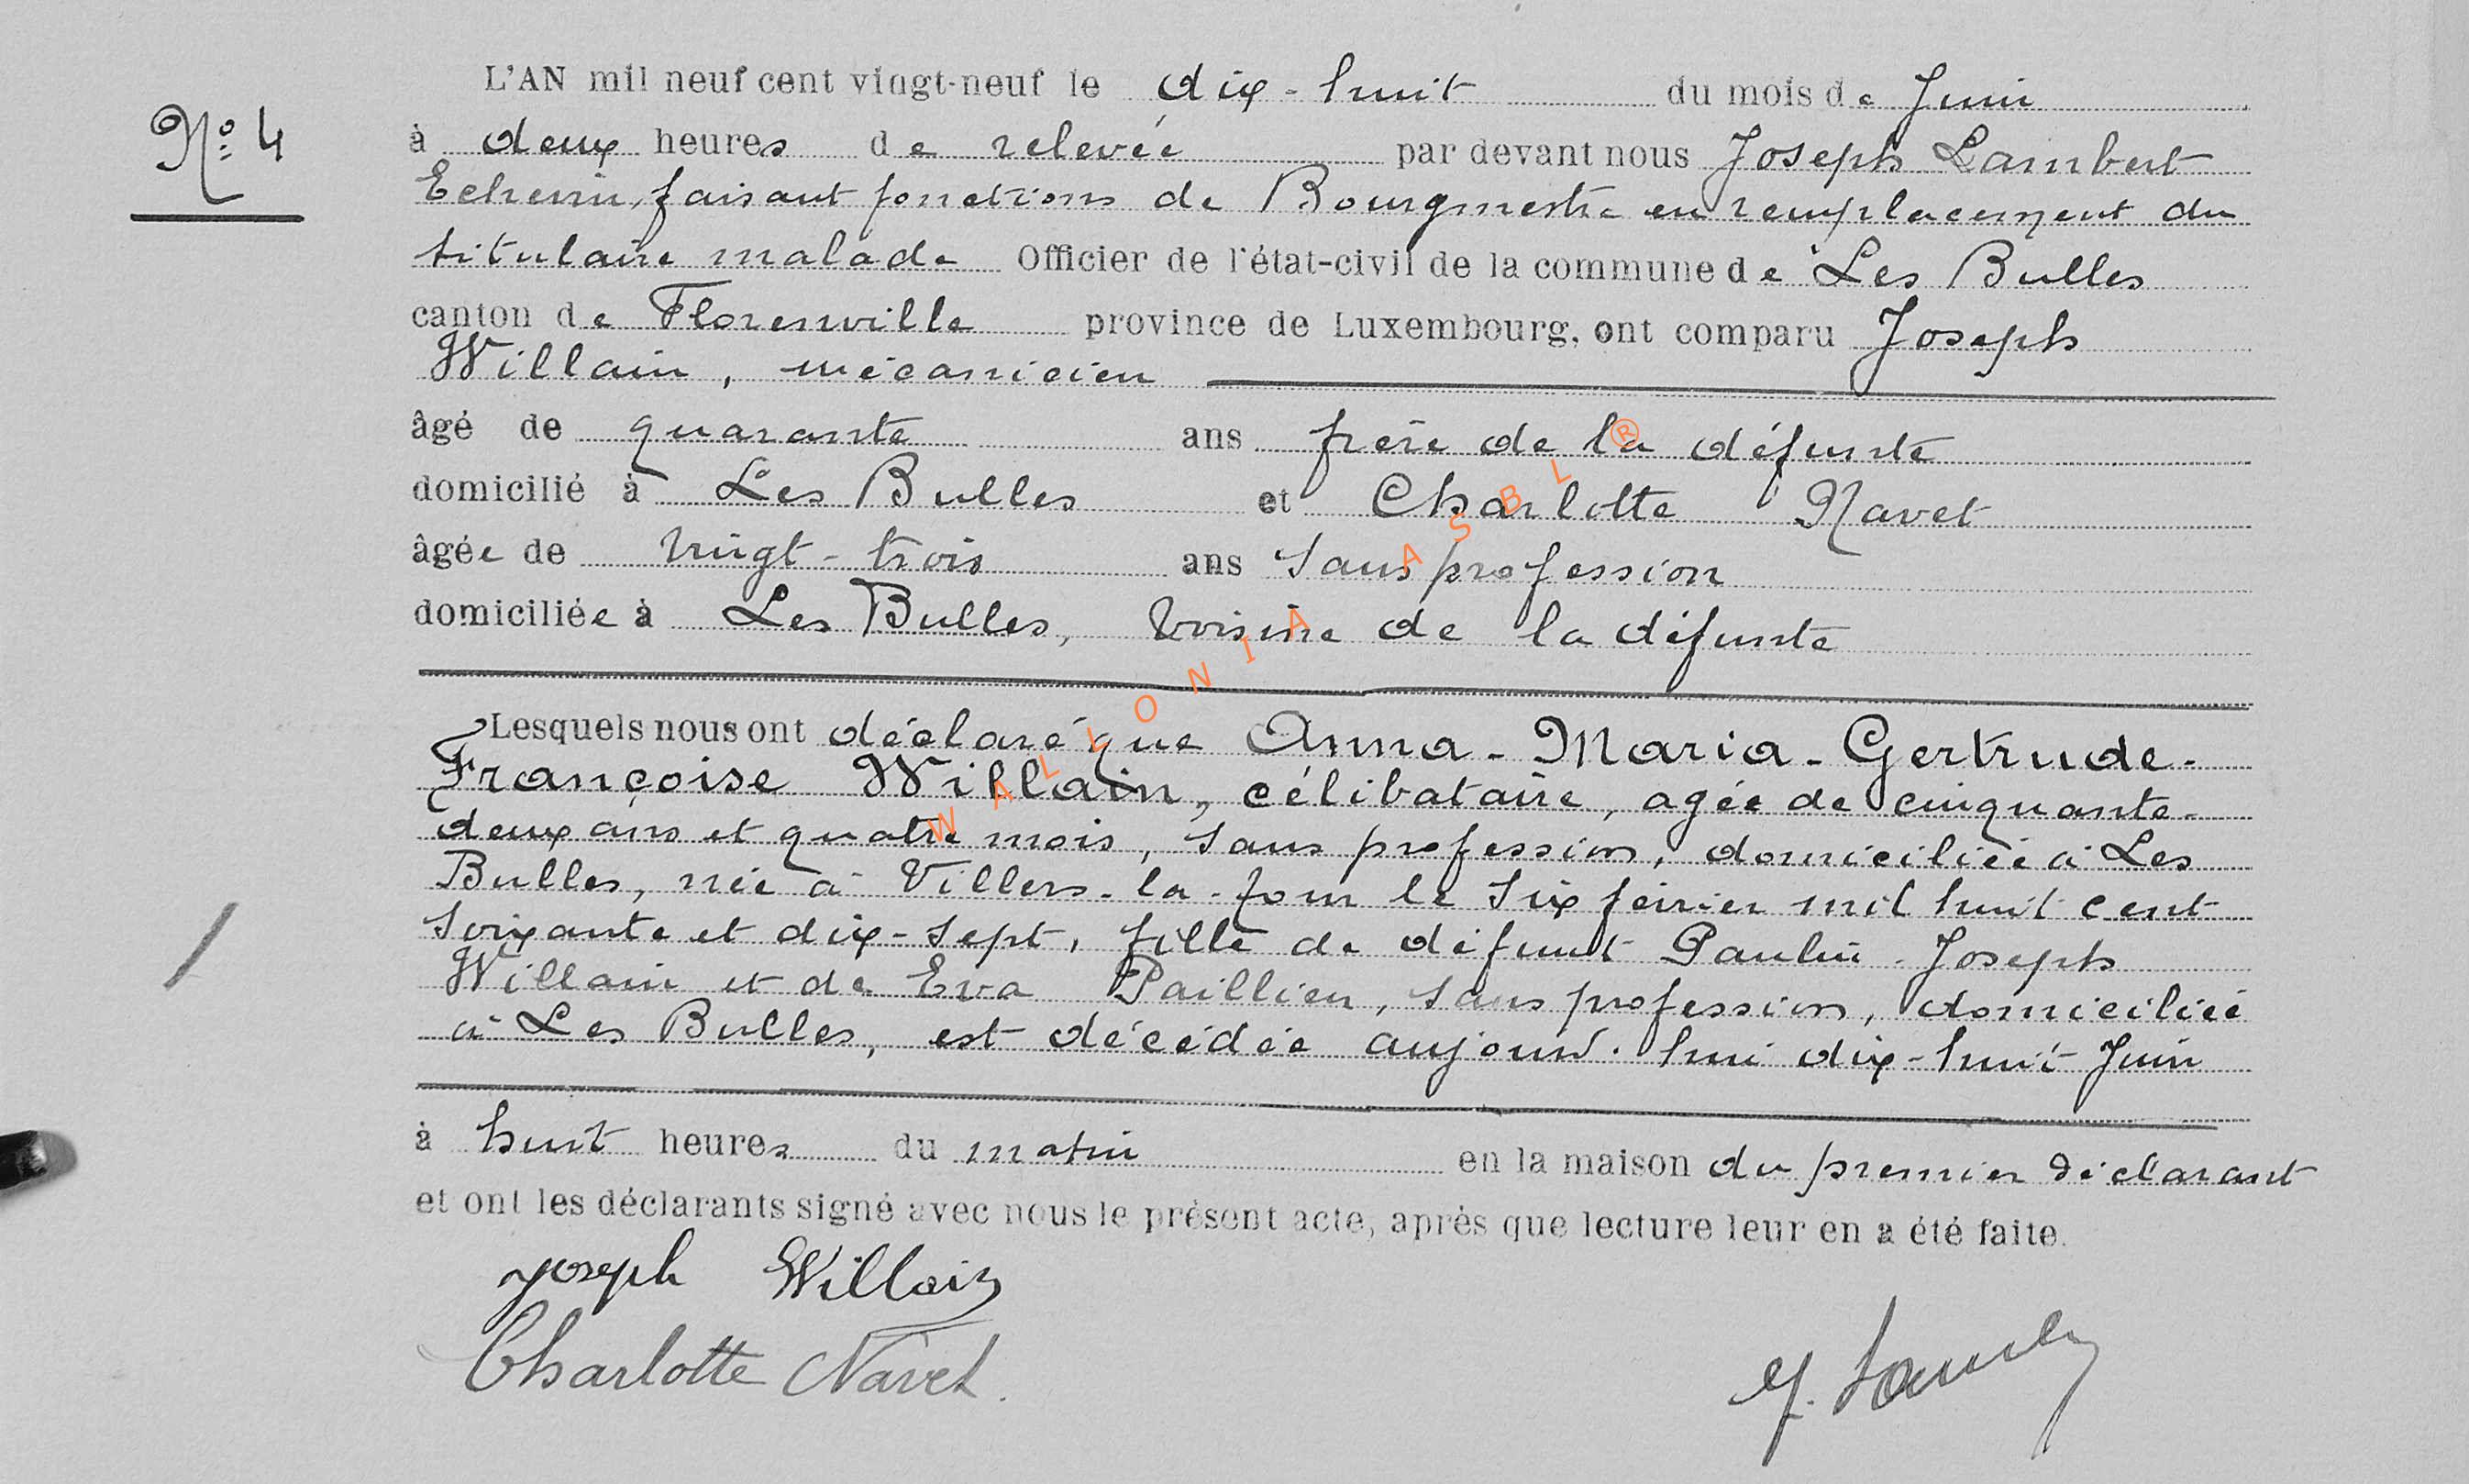 N° 4
L'AN mil neuf cent vingt-neuf le dix-huit du mois de Juin
à deux heures de relevée par devant nous Joseph Lambert
Echevin, faisant fonctions de Bourgmestre en remplacement du
titulaire malade Officier de l'état-civil de la commune de Les Bulles
canton de Florenville province de Luxembourg, ont comparu Joseph
Willain, mécanicien
âgé de quarante ans frère de la défunte
domicilié à Les Bulles et Charlotte Navet
âgée de vingt-trois ans sans profession
domiciliée à Les Bulles, voisine de la défunte
Lesquels nous ont déclaré que Anna-Maria-Gertrude-
Françoise Willain, célibataire, agée de cinquante-
deux ans et quatre mois, sans profession, domiciliée à Les
Bulles, née à Villers-la- le six février mil huit cent
soixante et dix-sept, fille de défunt Paulin-Joseph
Willain et de Eva Paillien, sans profession, domiciliée
à Les Bulles, est décédée aujourd'hui dix-huit Juin
à huit heures du matin en la maison du premier déclarant
et ont les déclarants signé avec nous le présent acte, après que lecture leur en a été faite.
Joseph Willain
Charlotte Navet.
WALLONIA ASBL ®